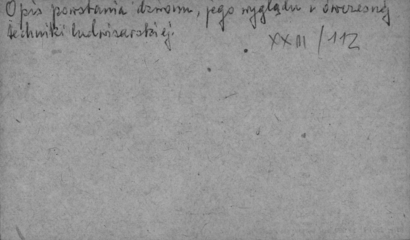 Opis powstania dzwonu, jego wyglądu i ówczesnej
techniki ludwisarskiej.
XXIII/112